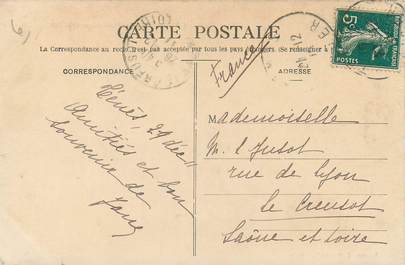 CARTE POSTALE
La Correspondance au recto n'est pas acceptée par tous les pays étrangers. (Se renseigner à
CORRESPONDANCE
ADRESSE
(France)
5c
POSTES
Ténès, 29 déc
Amitiés et bon
souvenir de
Mademoiselle
M.
rue de Lyon
le Creusot
Saône et Loire